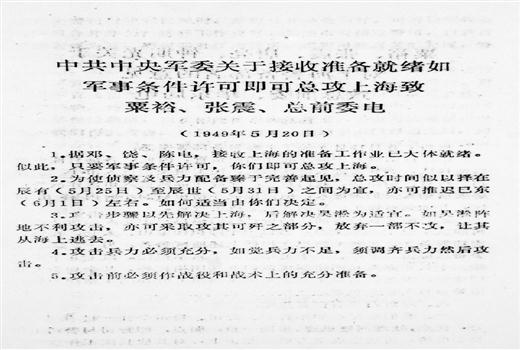 中共中央军委关于接收准备就绪如
军事条件许可即可总攻上海致
粟裕、张震、总前委电
（1949年5月20日）
1.据邓、饶、陈电，接收上海的准备工作业已大体就绪。
似此，只要军事条件许可，你们即可总攻上海。
2.为使侦察及兵力配备臻于完善起见，总攻时间似以择在
辰有（5月25日）至辰世（5月31日）之间为宜，亦可推迟巳东
（6月1日）左右。如何适当由你们决定。
3. 步骤以先解决上海，后解决吴淞为适宜。如吴淞阵
地不利攻击，亦可采取攻其可歼之部分，放弃一部不攻，让其
从海上逃去。
4.攻击兵力必须充分，如觉兵力不足，须调齐兵力然后攻
击。
5.攻击前必须作战役和战术上的充分准备。